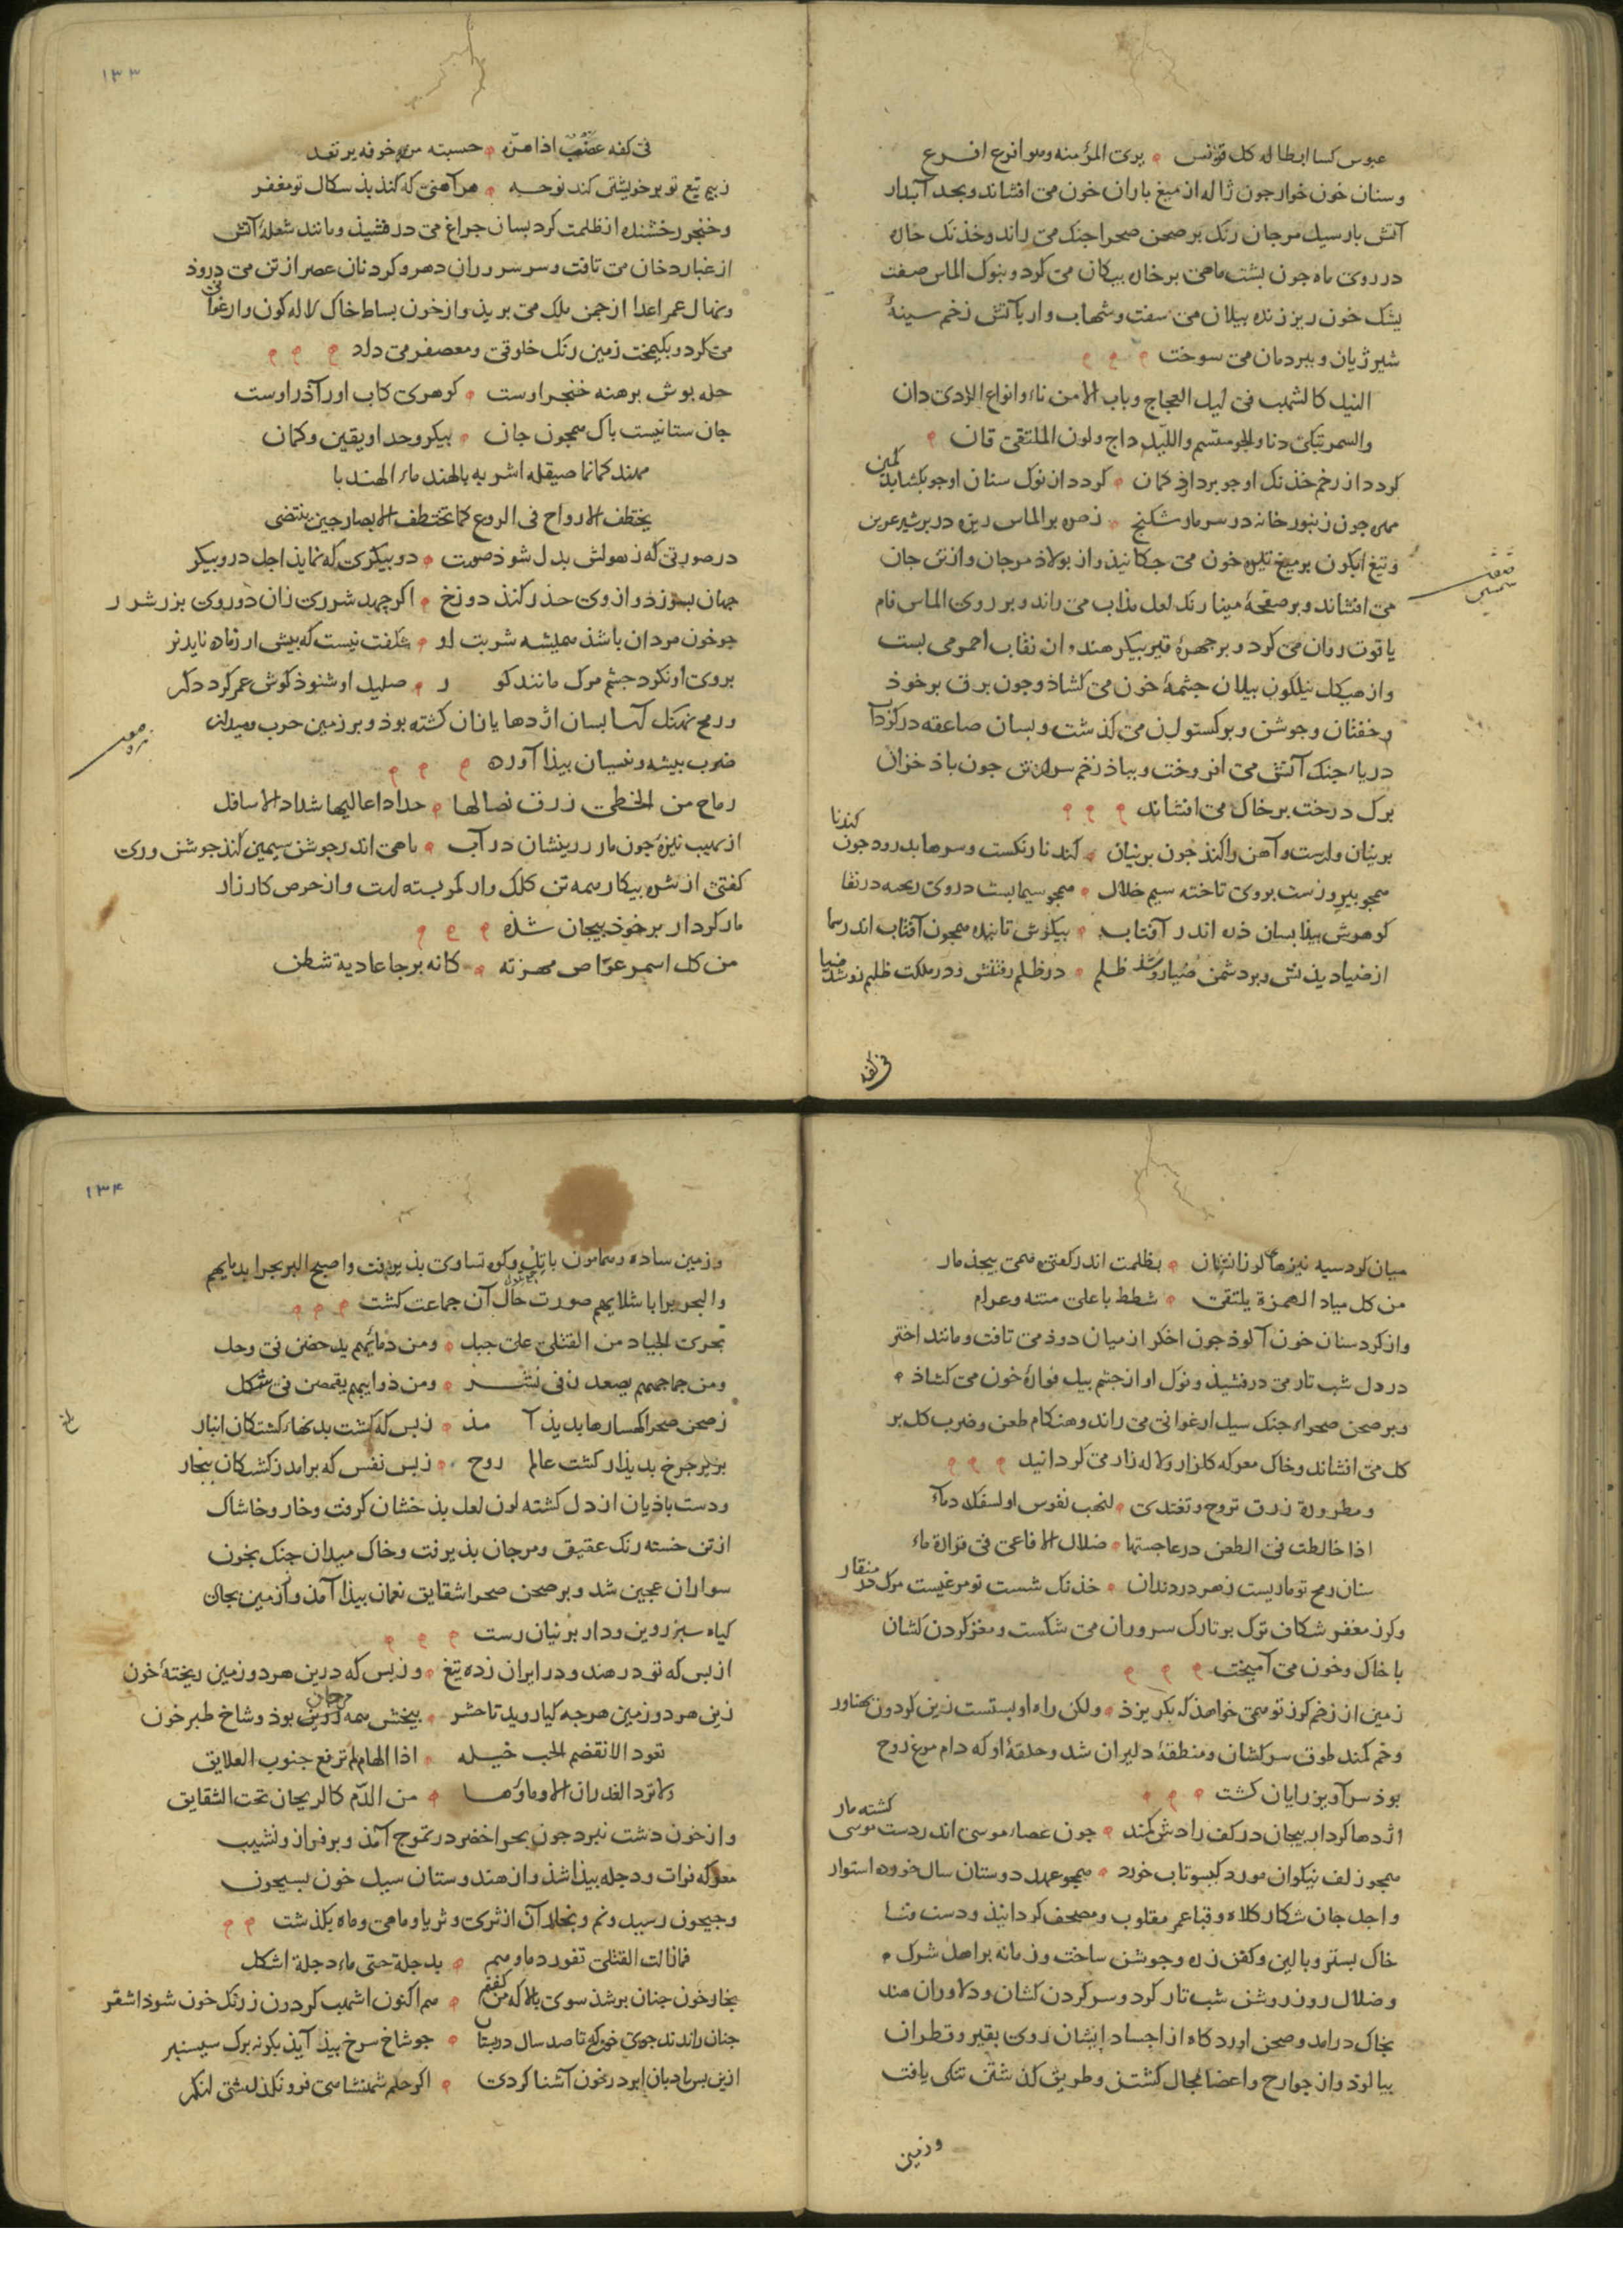 عبوس کسا ابطاله کل قونس ۾ یری المؤمنه وهو اقرع اقرع
وسنان خون خوار جون ژاله از میغ باران خون می افشاند و بحد آبدار
آتش بار سیل مرجان رنک بر صحن صحرا جنک می راند و خذنک خاره
در روی ماه جون بشت ماهی بر خاره بیکان می کرد و بنوک الماس صفت
یشک خون ریز زنده بیلان می سفت و شهاب وار باآتش زخم سینهٔ
شیر ژیان و ببر دمان می سوخت ۾ ۾ ۾
النبل کالشهب فی لیل العجاج وباب الامن ناء وانواع الردی دان
والسمر تبکی دنا والجو مبتسم واللیل داج ولون الملتقی قان ۾
کردد از زخم خذنک او جو بردارذ کمان ۾ کردد از نوک سنان او جو بکشاید کمین
مهره جون زنبور خانه در سر مار شکنج ۾ زهره بر الماس ریزه در بر شیر عرین
وتیغ ابکون بر میغ تیره خون می جکانیذ و از بولاد مرجان و از تن جان
می افشاند و بر صفحهٔ مینا رنک لعل مذاب می راند و بر روی الماس فام
یاقوت روان می کرد و بر جهرهٔ قیر بیکر هندوان نقاب احمر می بست
و از هیکل نیلکون بیلان جشمهٔ خون می کشاذ و جون برق بر خوذ
و خفتان و جوشن و برکستوان می کذشت و بسان صاعقه در کرداب
دریاء جنک آتش می افروخت و بباذ زخم سر از تن جون باذ خزان
برک درخت بر خاک می افشاند ۾ ۾ ۾
برنیان وارست و آهن را کند خون برنیان ۾ کندنا رنکست و سرها بدرود جون کندنا
همجو بیروزست بروی تاخته سیم خلال ۾ همجو سیمابست در وی ریخته در نقا
کوهرش بیذا بسان ذره اندر آفتاب ۾ بیکرش تابنده همجون آفتاب اندر سما
از ضیا دیذنش و بر دشمن ضیا روشد ظلم ۾ در ظلم رفتنش و در مملکت ظلم نوشد ضیا
فی کفه
۱۳۳
فی کفه عضب اذا هزه ۾ حسبته من خوفه یرتعد
ز بیم تیغ تو بر خویشتن کند نوحه ۾ هر آهنی که کنذ بذ سکال تو مغفر
و خنجر رخشنده از ظلمت کرد بسان جراغ می درفشیذ و مانند شعلهٔ آتش
از غبار دخان می تافت و سر سروران دهر و کردنان عصر از تن می دروذ
و نهال عمر اعدا از جمن ملک می بریذ و از خون بساط خاک لاله کون و ارغوانی
می کرد و بکیمخت زمین رنک خلوقی و معصفر می داد ۾ ۾ ۾
حله بوش برهنه خنجر اوست ۾ کوهری کاب اور آذر اوست
جان ستانیست باک همجون جان ۾ بیکر و حد او یقین و کمان
مهند کانما صیقله اشربه بالهند ماء الهندبا
یختطف الارواح فی الروع کما تختطف الابصار حین ینتضی
در صورتی که ز هولش بدل شوذ صورت ۾ دو بیکری که نمایذ اجل درو بیکر
جهان بسوزد و از وی حذر کنذ دوزخ ۾ اکر جهد شرری زان دو روی بر ز شرر
جو خون مردان باشذ همیشه شربت او ۾ شکفت نیست که بیش ار زماده ناید نر
بروی او نکرد جشم مرک مانند کو ر ۾ صلیل او شنوذ کوش عمر کردد کر
و رمح نهنک آسا بسان اژدها یازان کشته بوذ و بر زمین حرب و میدان
ضرب بیشه و نیسان بیذا آورده ۾ ۾ ۾
رماح من الخطی زرق نصالها ۾ حداد اعالیها شداد الاسافل
از نهیب نیزه جون مار زرینشان در آب ۾ ماهی اندر جوشن سیمین کنذ جوشن وری
کفتی از شره بیکار همه تن کلک وار کمر بسته است و از حرص کارزار
مار کردار بر خوذ بیجان شذه ۾ ۾ ۾
من کل اسمر عراص مهزته ۾ کانه برجا عادیة شطن
میان کرد سیه نیزها لوزانشان ۾ بظلمت اندر کفتی همی بیجذ مار
من کل میاد المهزة یلتقی ۾ شطط باعلی متنه وعرام
و از کرد سنان خون آلوذ جون اخکر از میان دوذ می تافت و مانند اختر
در دل شب تار می درفشیذ و نوک او از جشم بیل فوارهٔ خون می کشاذ ۾
و بر صحن صحراء جنک سیل ارغوانی می راند و هنکام طعن و ضرب کل بر
کل می افشاند و خاک معرکه کلزار و لاله زار می کردانید ۾ ۾ ۾
ومطرورة زرق تروح وتغتدی ۾ لنهب نفوس او لسفک دماء
اذا خالطت فی الطعن درعا حسبتها ۾ ضلال الافاعی فی قرارة ماء
سنان رمح تو ماریست زهر در دندان ۾ خذنک شست تو مرغیست مرک در منقار
و کرز مغفر شکاف ترک بر تارک سروران می شکست و مغز کردن کشان
با خاک و خون می آمیخت ۾ ۾ ۾
زمین از زخم کرز تو همی خواهذ که بکریزذ ۾ و لکن راه او بستست زین کردون بهناور
و خم کمند طوق سرکشان و منطقهٔ دلیران شد و حلقهٔ او که دام مرغ روح
بوذ سرآویز رایان کشت ۾ ۾ ۾
اژدها کردار بیجان در کف رادش کمند ۾ جون عصاء موسی اندر دست موسی کشته مار
همجو زلف نیکوان مورد کیسو تاب خورد ۾ همجو عهد دوستان سال خورده استوار
و اجل جان شکار کلاه و قبا عمر مقلوب و مصحف کردانیذ و دست فنا
خاک بستر و بالین و کفن زره و جوشن ساخت و زمانه بر اهل شرک ۾
و ضلال روز روشن شب تار کرد و سر کردن کشان و دلاوران هند
بخاک درامد و صحن اورد کاه از اجساد ایشان روی بقیر و قطران
بیالوذ و از جوارح و اعضا مجال کشتن و طریق کذشتن تنکی یافت
و زمین
۱۳۴
و زمین ساده و هامون با تل و کوه تساوی بذیرفت واصبح البر بحرا بدمایهم
والبحر برا باشلایهم صورت حال آن جماعت کشت ۾ ۾ ۾
تجری الجیاد من القتلی علی جبل ۾ ومن دمائهم یدحضن فی وحل
ومن جماجمهم یصعدن فی نشز ۾ ومن ذوایبهم یقمصن فی شکل
ز صحن صحرا کهسارها بدیذ آ مذ ۾ ز بس که کشت بدنهاء کشتکان انبار
بزیر جرخ بدیذار کشت عالم روح ۾ ز بس نفس که برامد ز کشتکان بخار
و دشت باذیان از دل کشته لون لعل بذخشان کرفت و خار و خاشاک
از تن خسته رنک عقیق و مرجان بذیرفت و خاک میدان جنک بخون
سواران عجین شد و بر صحن صحرا شقایق نعمان بیذا آمذ و از زمین بجای
کیاه سبز روین و دار برنیان رست ۾ ۾ ۾
از بس که تو در هند و در ایران زده تیغ ۾ وز بس که درین هر دو زمین ریختهٔ خون
زین هر دو زمین هرجه کیا روید تا حشر ۾ بیخش همه روین بوذ و شاخ طبر خون
تعود الا تقضم الحب خیله ۾ اذا الهام لم ترفع جنوب العلایق
ولا ترد الغدران الا وماؤها ۾ من الدم کالریحان تحت الشقایق
و از خون دشت نبرد جون بحر اخضر در تموج آمذ و بر فراز و نشیب
معرکه فرات و دجله بیذا شذ و از هندوستان سیل خون بسیحون
و جیحون رسید و نم و بخار آن از ثری و ثریا و ماهی و ماه بکذشت ۾ ۾
فمازالت القتلی تفور دماوهم ۾ بدجلة حتی ماء دجلة اشکل
بخار خون جنان برشذ سوی بالا که من کفتم ۾ هم اکنون اشهب کردون ز رنک خون شوذ اشقر
جنان راندند جوی خون که تا صد سال در بستان ۾ جو شاخ سرخ بیذ آیذ بکونه برک سیسنبر
ازین بس بادبان ابر در خون آشنا کردی ۾ اکر حلم شهنشاهی فرو نکذاشتی لنکر